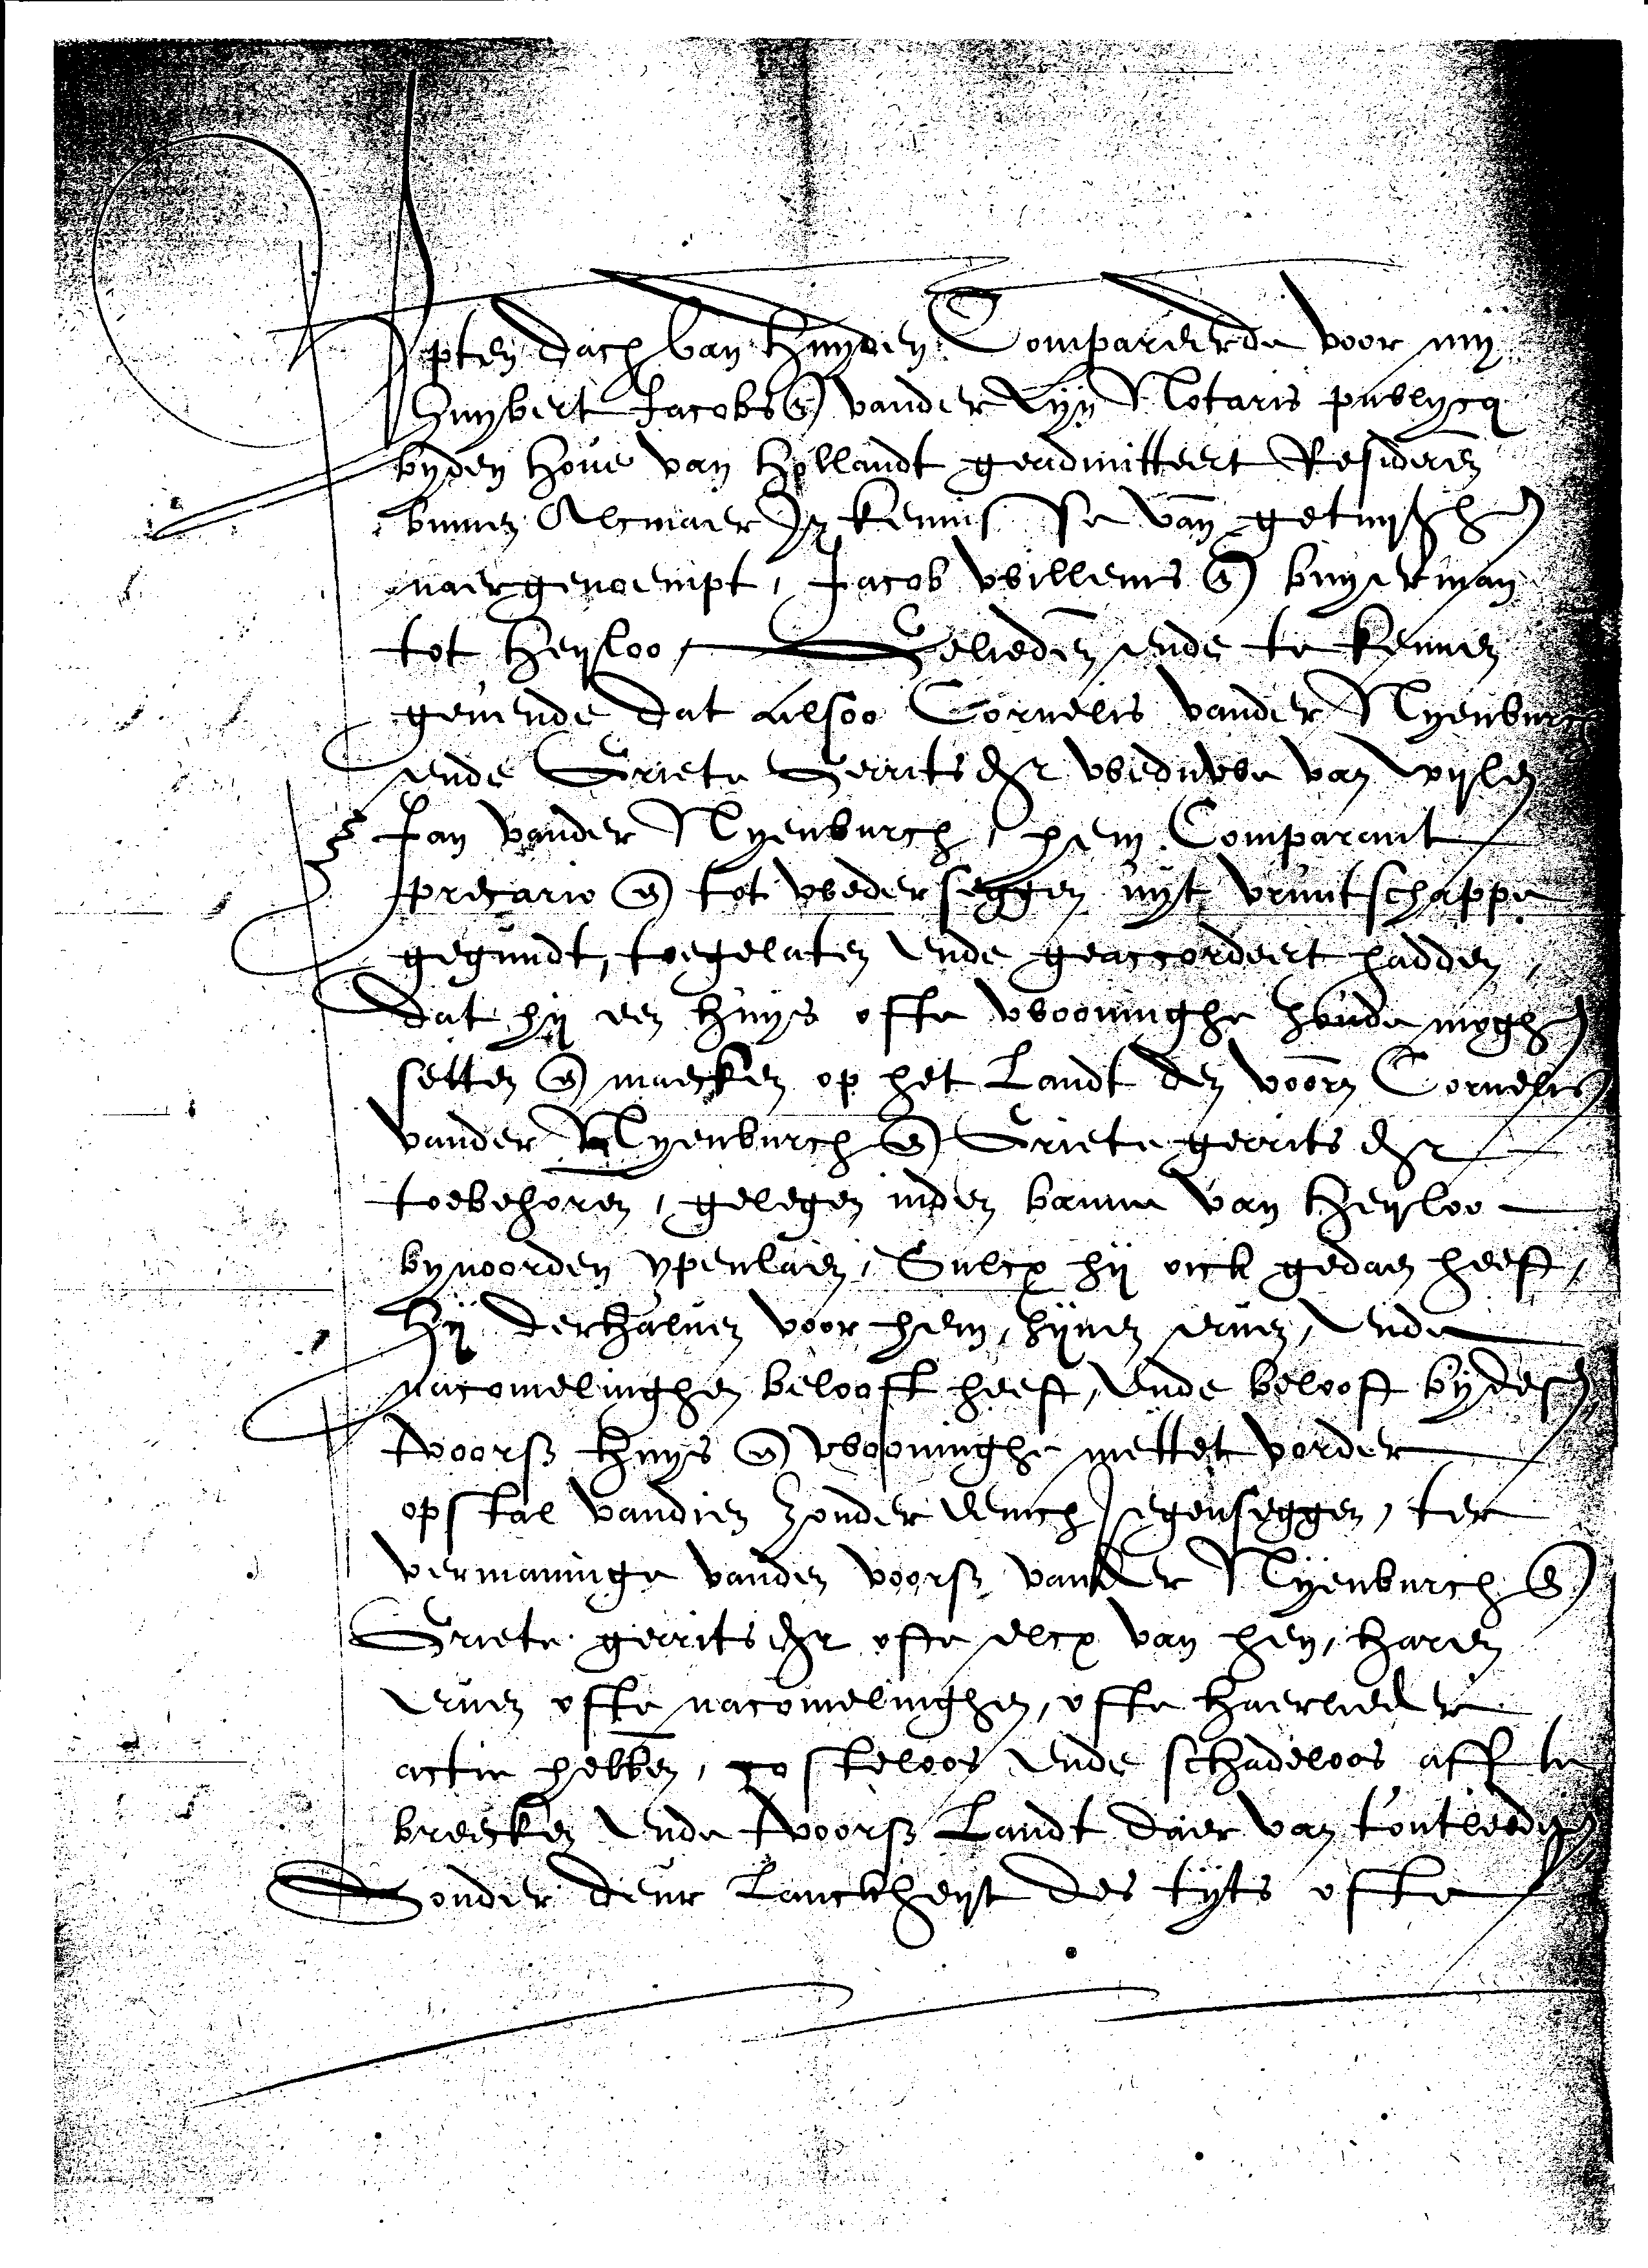 Opten dach van huyden Compareerde voor mij
Huybert Jacobsz vander Lijn Notaris publycq
byden Hove van Hollandt geadmitteert Residerē
binnen Alcmaer In kennisse van getuijghē
naergenoempt, Jacob Willems z buyerman
tot Heyloo, Gelieden ende te kennen
gevende dat Alsoo Cornelis vander Nyenburch
ende Griete Gerritsdr weduwe van wijlen
Jan vander Nyenburch, hem Comparant
precario eñ tot wederseggen uijt vruntschappe
gegundt, toegelaten ende geaccordeert hadden,
dat hij een huys ofte wooninghe soude moghē
setten eñ maecken op het Landt den voorñ Cornelis
vander Nyenburch eñ Griete gerrits dr
toebehoren, gelegen inden banne van Heyloo
bynoorden ypenlaen, Sulcx hij oick gedaen heeft,
Hij derhalven voor hem, sijnen erven, ende
nacomelinghen belooft heeft, ende belooft by desē
tvoorsz huys eñ wooninghe mettet vorder
opstal vandien sonder eenich Jegenseggen, ter
vermaninge vanden voorsz vander Nyenburch eñ
Griete gerritsdr ofte elcx van hen, haren
erven ofte nacomelinghen, ofte haerlieder
actie hebbeñ, costeloos ende schadeloos aff te
breecken ende tvoorsz Landt daer van t'ontleedigē
Sonder deur Lanckheyt des tijts ofte